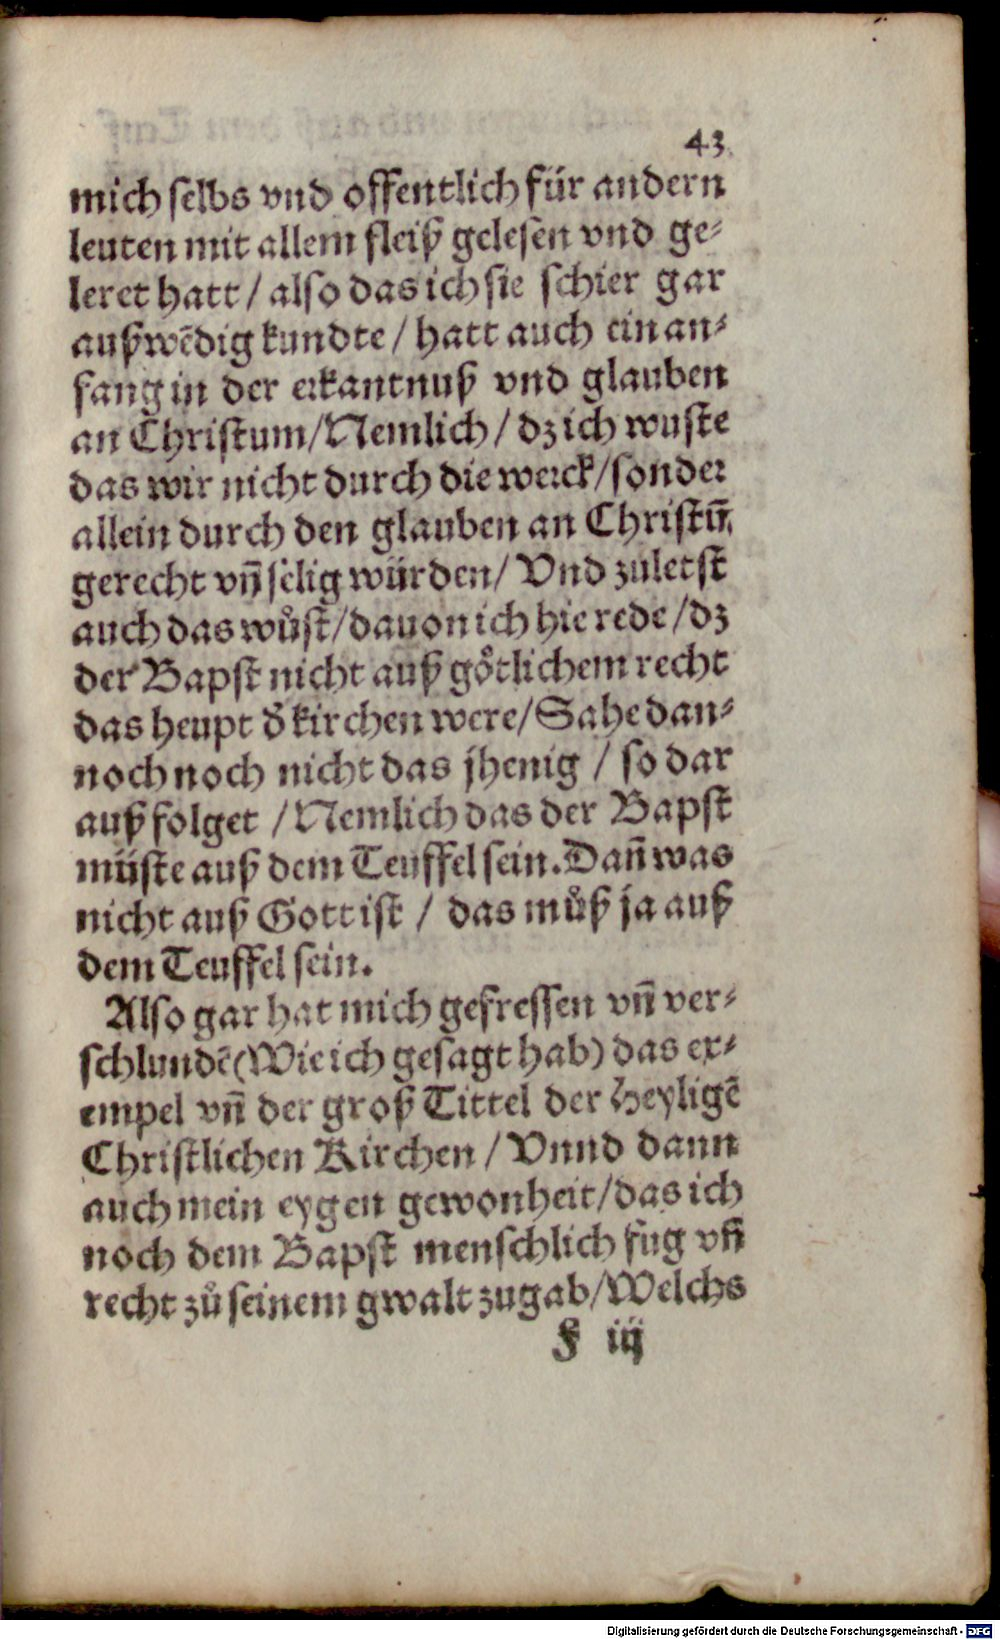 43
mich selbs vnd offentlich für andern
leuten mit allem fleiß gelesen vnd ge⸗
leret hatt / also das ich sie schier gar
außwēdig kundte / hatt auch ein an⸗
fang in der erkantnuß vnd glauben
an Christum / Nemlich / dz ich wuste
das wir nicht durch die werck / sonder
allein durch den glauben an Christū
gerecht vñ selig würden / Vnd zuletst
auch das wůst / dauon ich hie rede / dz
der Bapst nicht auß gőtlichem recht
das heupt d̕ kirchen were / Sahe dan⸗
noch noch nicht das jhenig / so dar
auß folget / Nemlich das der Bapst
müste auß dem Teuffel sein. Dañ was
nicht auß Gott ist / das můß ja auß
dem Teuffel sein.
Also gar hat mich gefressen vñ ver⸗
schlundē (Wie ich gesagt hab) das ex⸗
empel vñ der groß Tittel der Heyligē
Christlichen Kirchen / Vnnd dann
auch mein eygen gewonheit / das ich
noch dem Bapst menschlich fug vñ
recht zů seinem gwalt zugab / Welchs
F iij
Digitalisierung gefördert durch die Deutsche Forschungsgemeinschaft - DFG